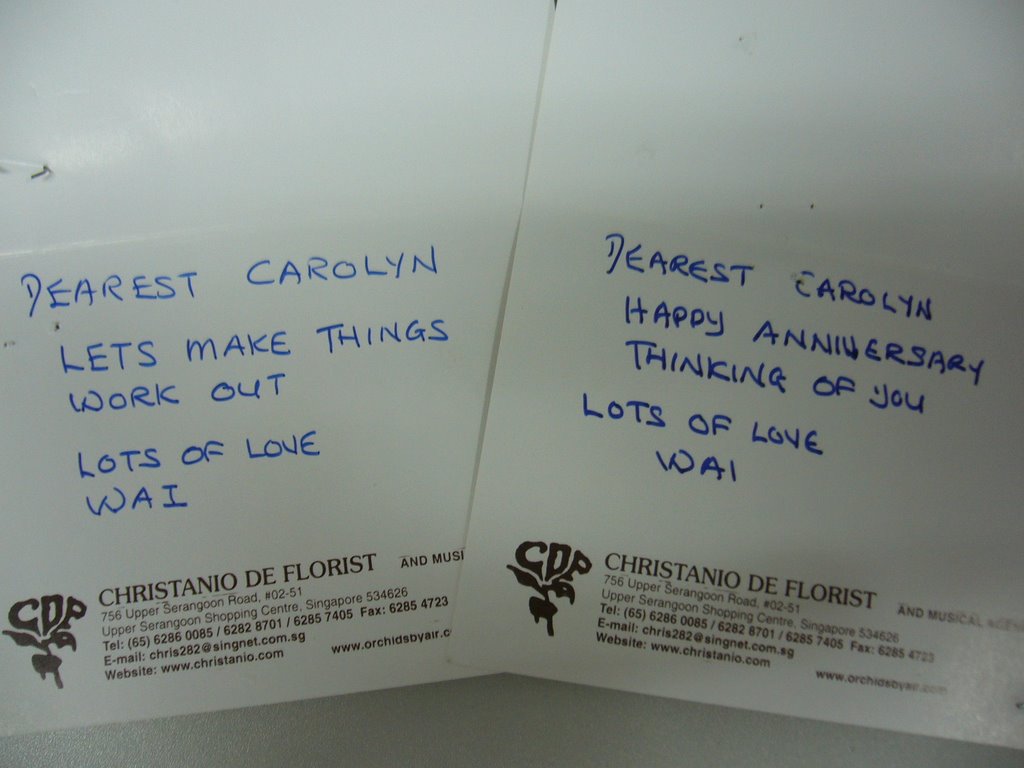 DEAREST CAROLYN
LETS MAKE THINGS
WORK OUT
LOTS OF LOVE
WAI
CDP
CHRISTANIO DE FLORIST AND MUSI
756 Upper Serangoon Road, #02-51
Upper Serangoon Shopping Centre, Singapore 534626
Tel: (65) 6286 0085 / 6282 8701 / 6285 7405 Fax: 6285 4723
E-mail: chris282@singnet.com.sg
Website: www.christanio.com www.orchidsbyair.c
DEAREST CAROLYN
HAPPY ANNIVERSARY
THINKING OF YOU
LOTS OF LOVE
WAI
CDP
CHRISTANIO DE FLORIST AND MUSICAL AGEN
756 Upper Serangoon Road, #02-51
Upper Serangoon Shopping Centre, Singapore 534626
Tel: (65) 6286 0085 / 6282 8701 / 6285 7405 Fax: 6285 4723
E-mail: chris282@singnet.com.sg
Website: www.christanio.com www.orchidsbyair.com